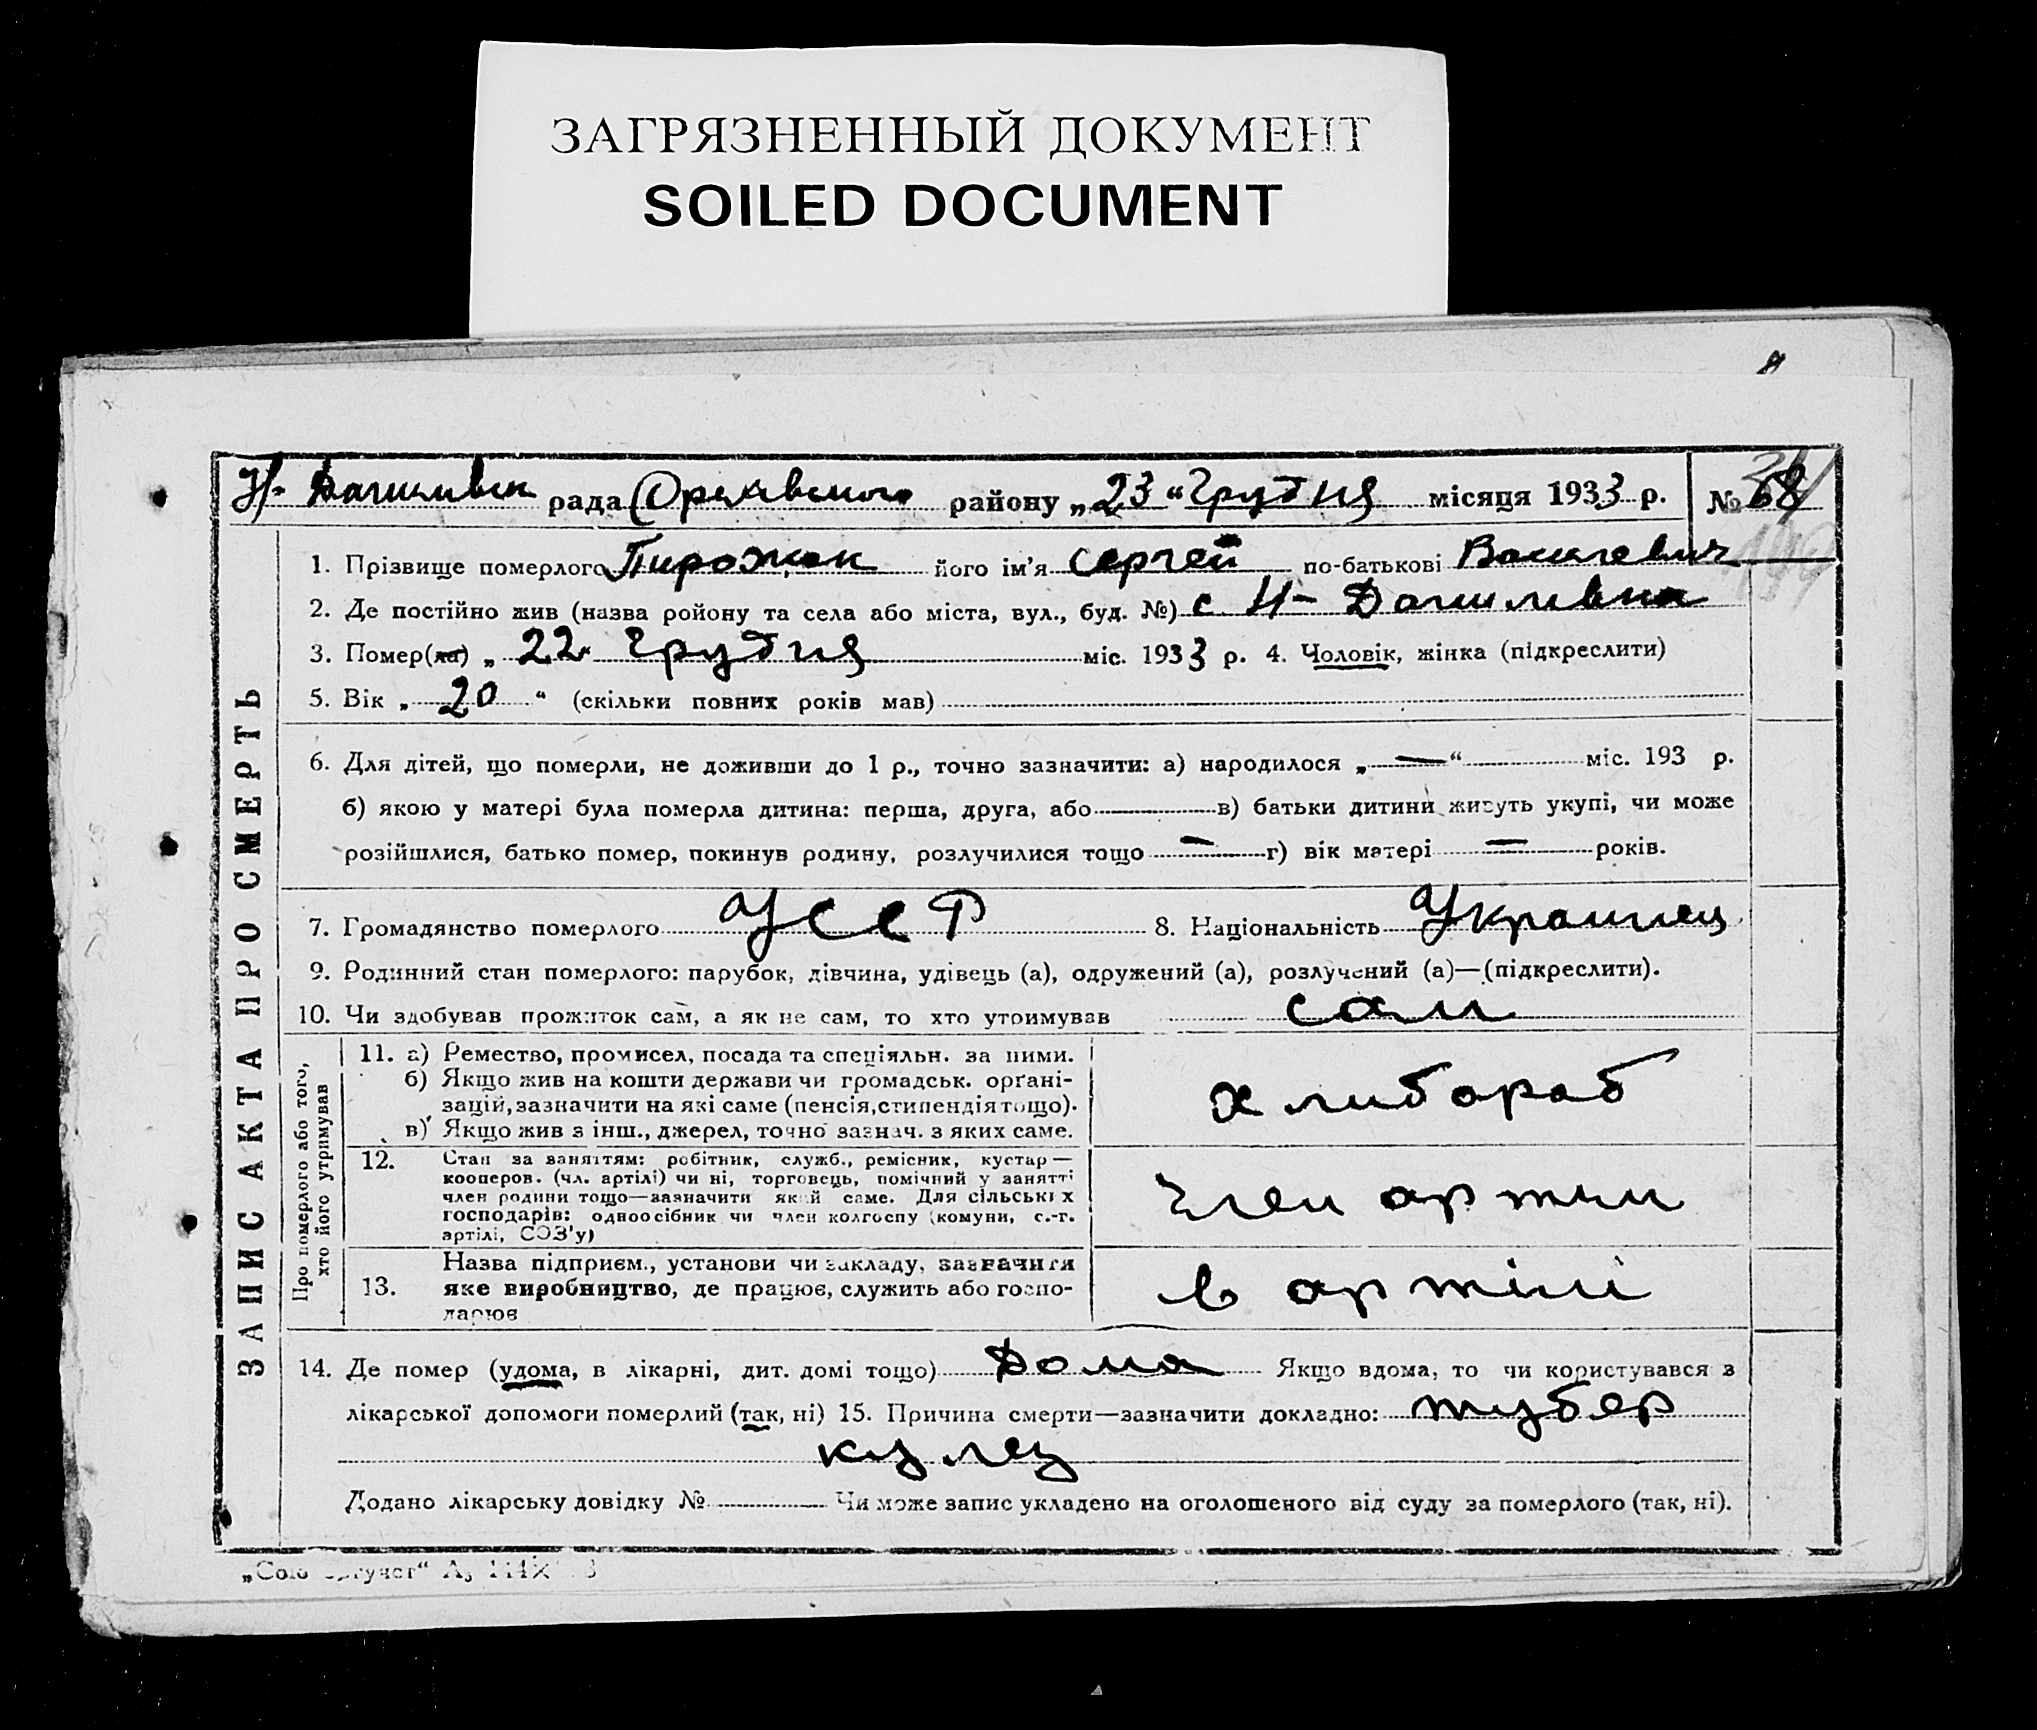 ЗАГРЯЗНЕННЫЙ ДОКУМЕНТ
SOILED DOCUMENT
рада район у „23“ Грудня місяця 1933 р. № 68
ЗАПИС АКТА ПРО СМЕРТЬ
1. Прізвище померлого Пирожок його ім’я Сергей по-батькові Васильевич
2. Де постійно жив (назва ройону та села або міста, вул., буд. №) с Н-
3. Помер(ла) „22“ Грудня міс. 1933 р. 4. Чоловік, жінка (підкреслити)
5. Вік „20“ (скільки повних років мав)
6. Для дітей, що померли, не доживши до 1 р., точно зазначити: а) народилося „—“ міс. 193 р.
б) якою у матері була померла дитина: перша, друга, або в) батьки дитини живуть укупі, чи може
розійшлися, батько помер, покинув родину, розлучилися тощо — г) вік матері — років.
7. Громадянство померлого УССР 8. Національність Украинец
9. Родинний стан померлого: парубок, дівчина, удівець (а), одружений (а), розлучений (а)—(підкреслити).
10. Чи здобував прожиток сам, а як не сам, то хто утримував сам
Про померлого або того,
хто його утримував
11. а) Ремество, промисел, посада та спеціяльн. за ними.
б) Якщо жив на кошти держави чи громадськ. орґані-
зацій, зазначити на які саме (пенсія, стипендія тощо).
в) Якщо жив з інш., джерел, точно зазнач. з яких саме.
хлибораб
12. Стан за заняттям: робітник, служб., ремісник, кустар —
кооперов. (чл. артілі) чи ні, торговець, помічний у занятті
член родини тощо—зазначити який саме. Для сільських
господарів: одноосібник чи член колгоспу (комуни, с.-г.
артілі, СОЗ'у)
член артили
13. Назва підприєм., установи чи закладу, зазначити
яке виробництво, де працює, служить або госпо-
дарює
в артілі
14. Де помер (удома, в лікарні, дит. домі тощо) Дома Якщо вдома, то чи користувався з
лікарської допомоги померлий (так, ні) 15. Причина смерти—зазначити докладно: тубер
кулез
Додано лікарську довідку № Чи може запис укладено на оголошеного від суду за померлого (так, ні).